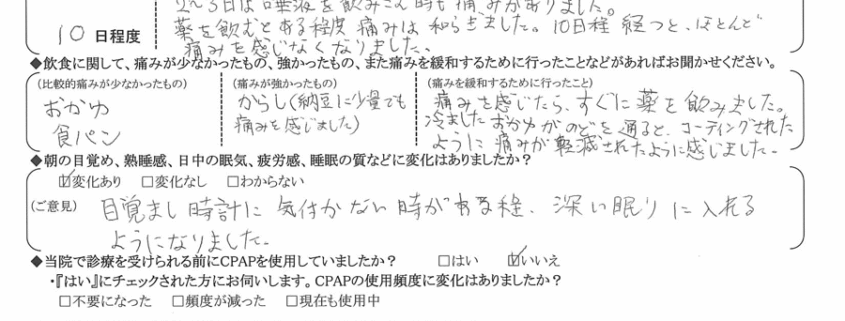 2〜3日は唾液を飲みこむ時も痛みがありました。
薬を飲むとある程度 痛みは和らきました。10日程 経つと、ほとんど
10 日程度
痛みを感じなくなりました。
◆飲食に関して、痛みが少なかったもの、強かったもの、また痛みを緩和するために行ったことなどがあればお聞かせください。
(比較的痛みが少なかったもの) (痛みが強かったもの) (痛みを緩和するために行ったこと)
おかゆ からし(納豆に少量でも 痛みを感じたら、すぐに薬を飲みました。
食パン 痛みを感じました) 冷ました おかゆがのどを通ると、コーティングされた
ように痛みが軽減されたように感じました。
◆朝の目覚め、熟睡感、日中の眠気、疲労感、睡眠の質などに変化はありましたか?
☑変化あり □変化なし □わからない
(ご意見) 目覚まし時計に気付かない時がある程、深い眠りに入れる
ようになりました。
◆当院で診療を受けられる前にCPAPを使用していましたか? □はい ☑いいえ
・『はい』にチェックされた方にお伺いします。CPAPの使用頻度に変化はありましたか?
□不要になった □頻度が減った □現在も使用中